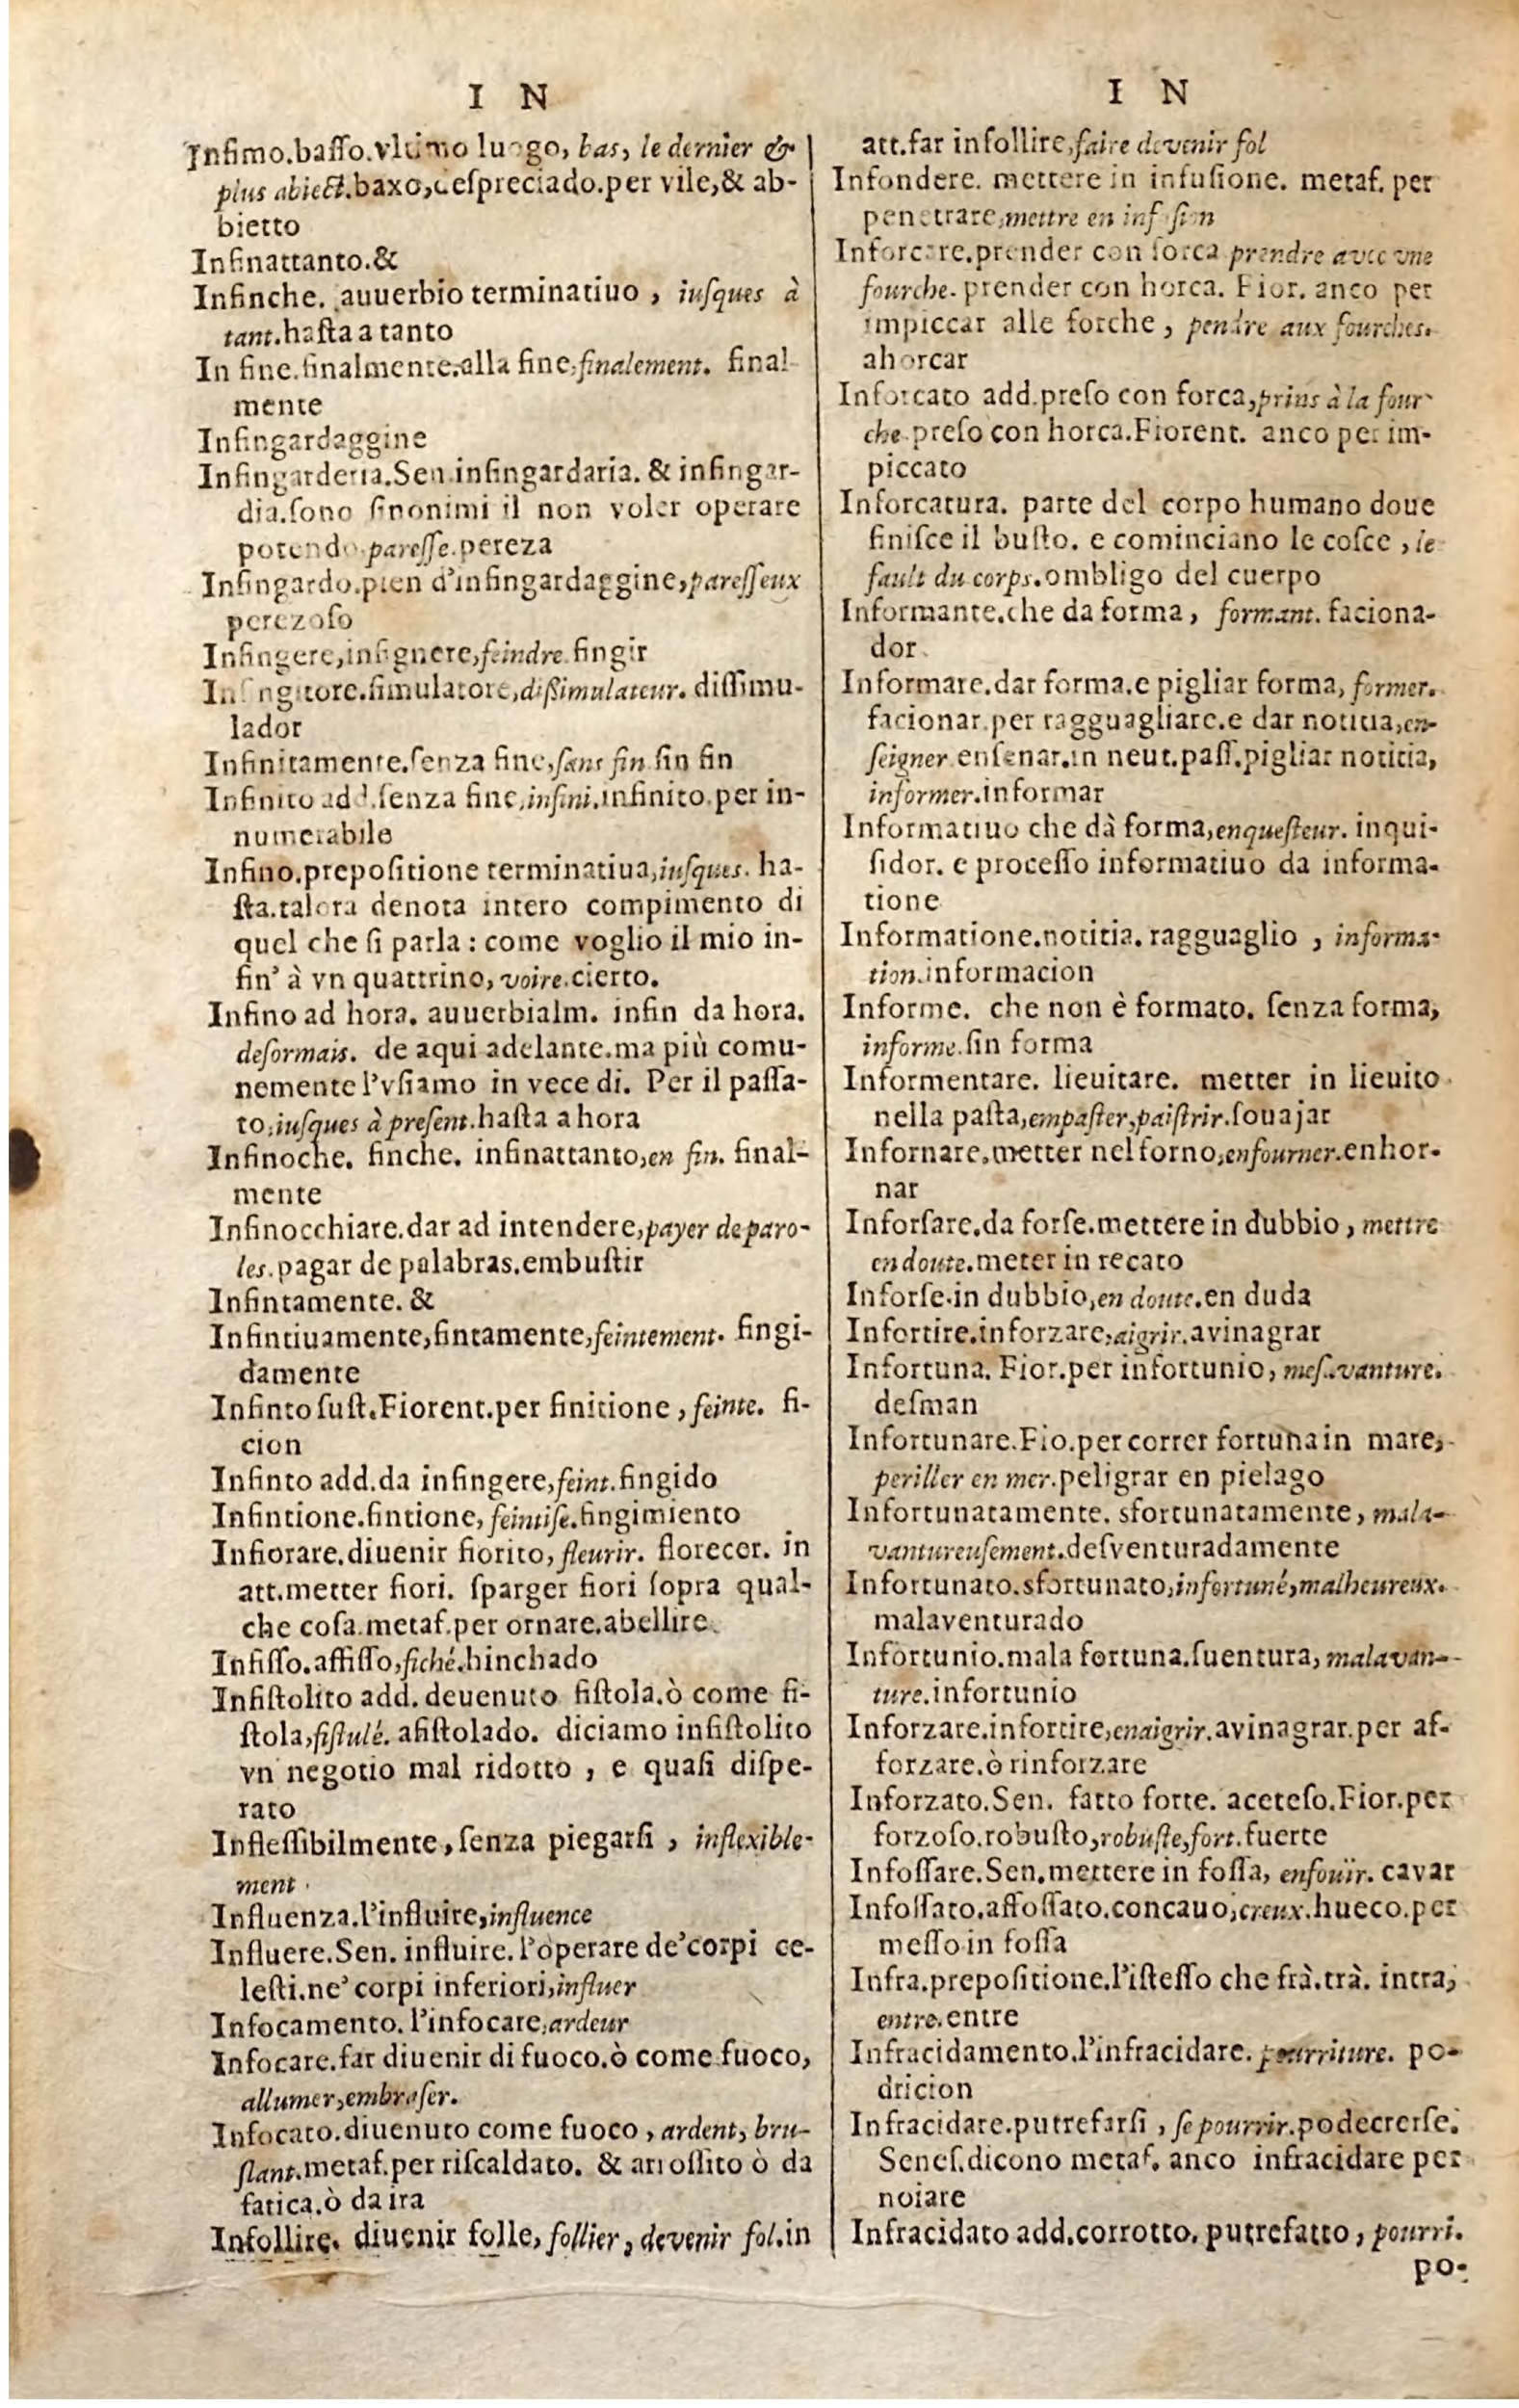 I N
Infimo.baſſo.vltimo luogo, bas, le dernier &
plus abiect.baxo,deſpreciado.per vile,& ab-
bietto
Infinattanto.&
Infinche. auuerbio terminatiuo , iuſques à
tant.haſta a tanto
In fine.finalmente.alla fine,finalement. final-
mente
Infingardaggine
Infingarderia.Sen.infingardaria. & infingar-
dia.ſono ſinonimi il non voler operare
potendo.pareſſe.pereza
Infingardo.pien d'infingardaggine,pareſſeux
perezoſo
Infingere,infignere,feindre.fingir
Infingitore.ſimulatore,diſſimulateur. diſſimu-
lador
Infinitamente.ſenza fine,ſans fin ſin fin
Infinito add.ſenza fine,infini.infinito.per in-
numerabile
Infino.prepoſitione terminatiua,iuſques. ha-
ſta.talora denota intero compimento di
quel che ſi parla : come voglio il mio in-
fin' à vn quattrino, voire.cierto.
Infino ad hora. auuerbialm. infin da hora.
deſormais. de aqui adelante.ma più comu-
nemente l'vſiamo in vece di. Per il paſſa-
to,iuſques à preſent.haſta ahora
Infinoche. finche. infinattanto,en fin. final-
mente
Infinocchiare.dar ad intendere,payer de paro-
les.pagar de palabras.embuſtir
Infintamente. &
Infintiuamente,fintamente,feintement. fingi-
damente
Infinto ſuſt.Fiorent.per finitione , feinte. fi-
cion
Infinto add.da infingere,feint.fingido
Infintione.fintione, feintiſe.fingimiento
Infiorare.diuenir fiorito, fleurir. florecer. in
att.metter fiori. ſparger fiori ſopra qual-
che coſa.metaf.per ornare.abellire
Infiſſo.affiſſo,fiché.hinchado
Infiſtolito add. deuenuto fiſtola.ò come fi-
ſtola,fiſtulé. afiſtolado. diciamo infiſtolito
vn negotio mal ridotto , e quaſi diſpe-
rato
Infleſſibilmente,ſenza piegarſi , inflexible-
ment
Influenza.l'influire,influence
Influere.Sen. influire. l'operare de'corpi ce-
leſti.ne' corpi inferiori,influer
Infocamento. l'infocare,ardeur
Infocare.far diuenir di fuoco.ò come fuoco,
allumer,embraſer.
Infocato.diuenuto come fuoco , ardent, bru-
ſlant.metaf.per riſcaldato. & arroſſito ò da
fatica.ò da ira
Infollire. diuenir folle, follier, devenir fol.in
I N
att.far infollire,faire devenir fol
Infondere. mettere in infuſione. metaf. per
penetrare,mettre en infuſion
Inforcare.prender con forca prendre avec vne
fourche. prender con horca. Fior. anco per
impiccar alle forche , pendre aux fourches.
ahorcar
Inforcato add.preſo con forca,prins à la four-
che.preſo con horca.Fiorent. anco per im-
piccato
Inforcatura. parte del corpo humano doue
finiſce il buſto. e cominciano le coſce , le
fault du corps.ombligo del cuerpo
Informante.che da forma , formant. faciona-
dor
Informare.dar forma.e pigliar forma, former.
facionar.per ragguagliare.e dar notitia,en-
ſeigner enſenar.in neut.paſſ.pigliar notitia,
informer.informar
Informatiuo che dà forma,enqueſteur. inqui-
ſidor. e proceſſo informatiuo da informa-
tione
Informatione.notitia. ragguaglio , informa-
tion.informacion
Informe. che non è formato. ſenza forma,
informe.ſin forma
Informentare. lieuitare. metter in lieuito
nella paſta,empaſter,paiſtrir.ſouajar
Infornare.metter nel forno,enfourner.enhor-
nar
Inforſare.da forſe.mettere in dubbio , mettre
en doute.meter in recato
Inforſe.in dubbio,en doute.en duda
Infortire.inforzare,aigrir.avinagrar
Infortuna. Fior.per infortunio, meſavanture.
deſman
Infortunare.Fio.per correr fortuna in mare,
periller en mer.peligrar en pielago
Infortunatamente. sfortunatamente, mala-
vantureuſement.deſventuradamente
Infortunato.sfortunato,infortuné,malheureux.
malaventurado
Infortunio.mala fortuna.ſuentura, malavan-
ture.infortunio
Inforzare.infortire,enaigrir.avinagrar.per af-
forzare.ò rinforzare
Inforzato.Sen. fatto forte. aceteſo.Fior.per
forzoſo.robuſto,robuſte,fort.fuerte
Infoſſare.Sen.mettere in foſſa, enfouïr. cavar
Infoſſato.affoſſato.concauo,creux.hueco.per
meſſo in foſſa
Infra.prepoſitione.l'iſteſſo che frà.trà. intra,
entre.entre
Infracidamento.l'infracidare. pourriture. po-
dricion
Infracidare.putrefarſi , ſe pourrir.podecrerſe.
Seneſ.dicono metaf. anco infracidare per
noiare
Infracidato add.corrotto. putrefatto , pourri.
po-